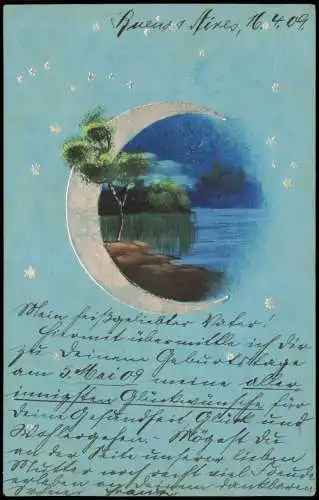 Buenos Aires, 16.4.09.
Mein heißgeliebter Vater!
Hiermit übermittle ich dir
zu Deinem Geburtstage
am 5. Mai 09 meine aller-
innigsten Glückwünsche für
Deine Gesundheit Glück und
Wohlergehen.- Mögest du
an der Seite unserer lieben
Mutter noch recht viel Freude
erleben an deinem dankbaren
Sohne Franz